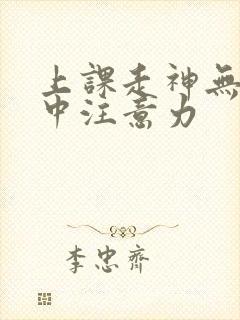 上課走神無
中注意力
李忠齊